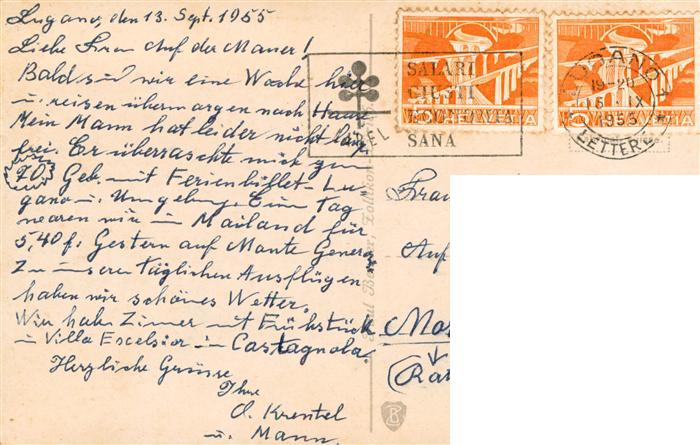 Lugano, den 13. Sept. 1955
Liebe Frau Auf der Mauer!
Bald sind wir eine Woche hier
u. reisen übermorgen nach Hause
Mein Mann hat leider nicht lang
frei. Er überraschte mich zum
70. Geb. mit Ferienbillet-Lu-
gano u. Umgebung. Ein Tag
waren wir in Mailand für
5,40 f. Gestern auf Monte Generoso
Zu unseren täglichen Ausflügen
haben wir schönes Wetter.
Wir haben Zimmer mit Frühstück
in Villa Excelsior in Castagnola.
Herzliche Grüsse
Ihre
O. Krentel
u. Mann.
SALARI
SANA
LUGANO
1955
LETTERE
HELVETIA
5
5
Zollikon
Frau
Auf